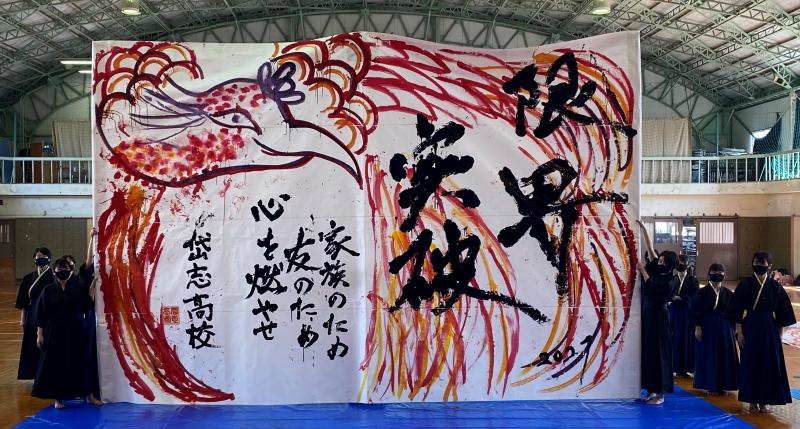 限界
突破
家族のため
友のため
心を燃やせ
岱志高校
2021